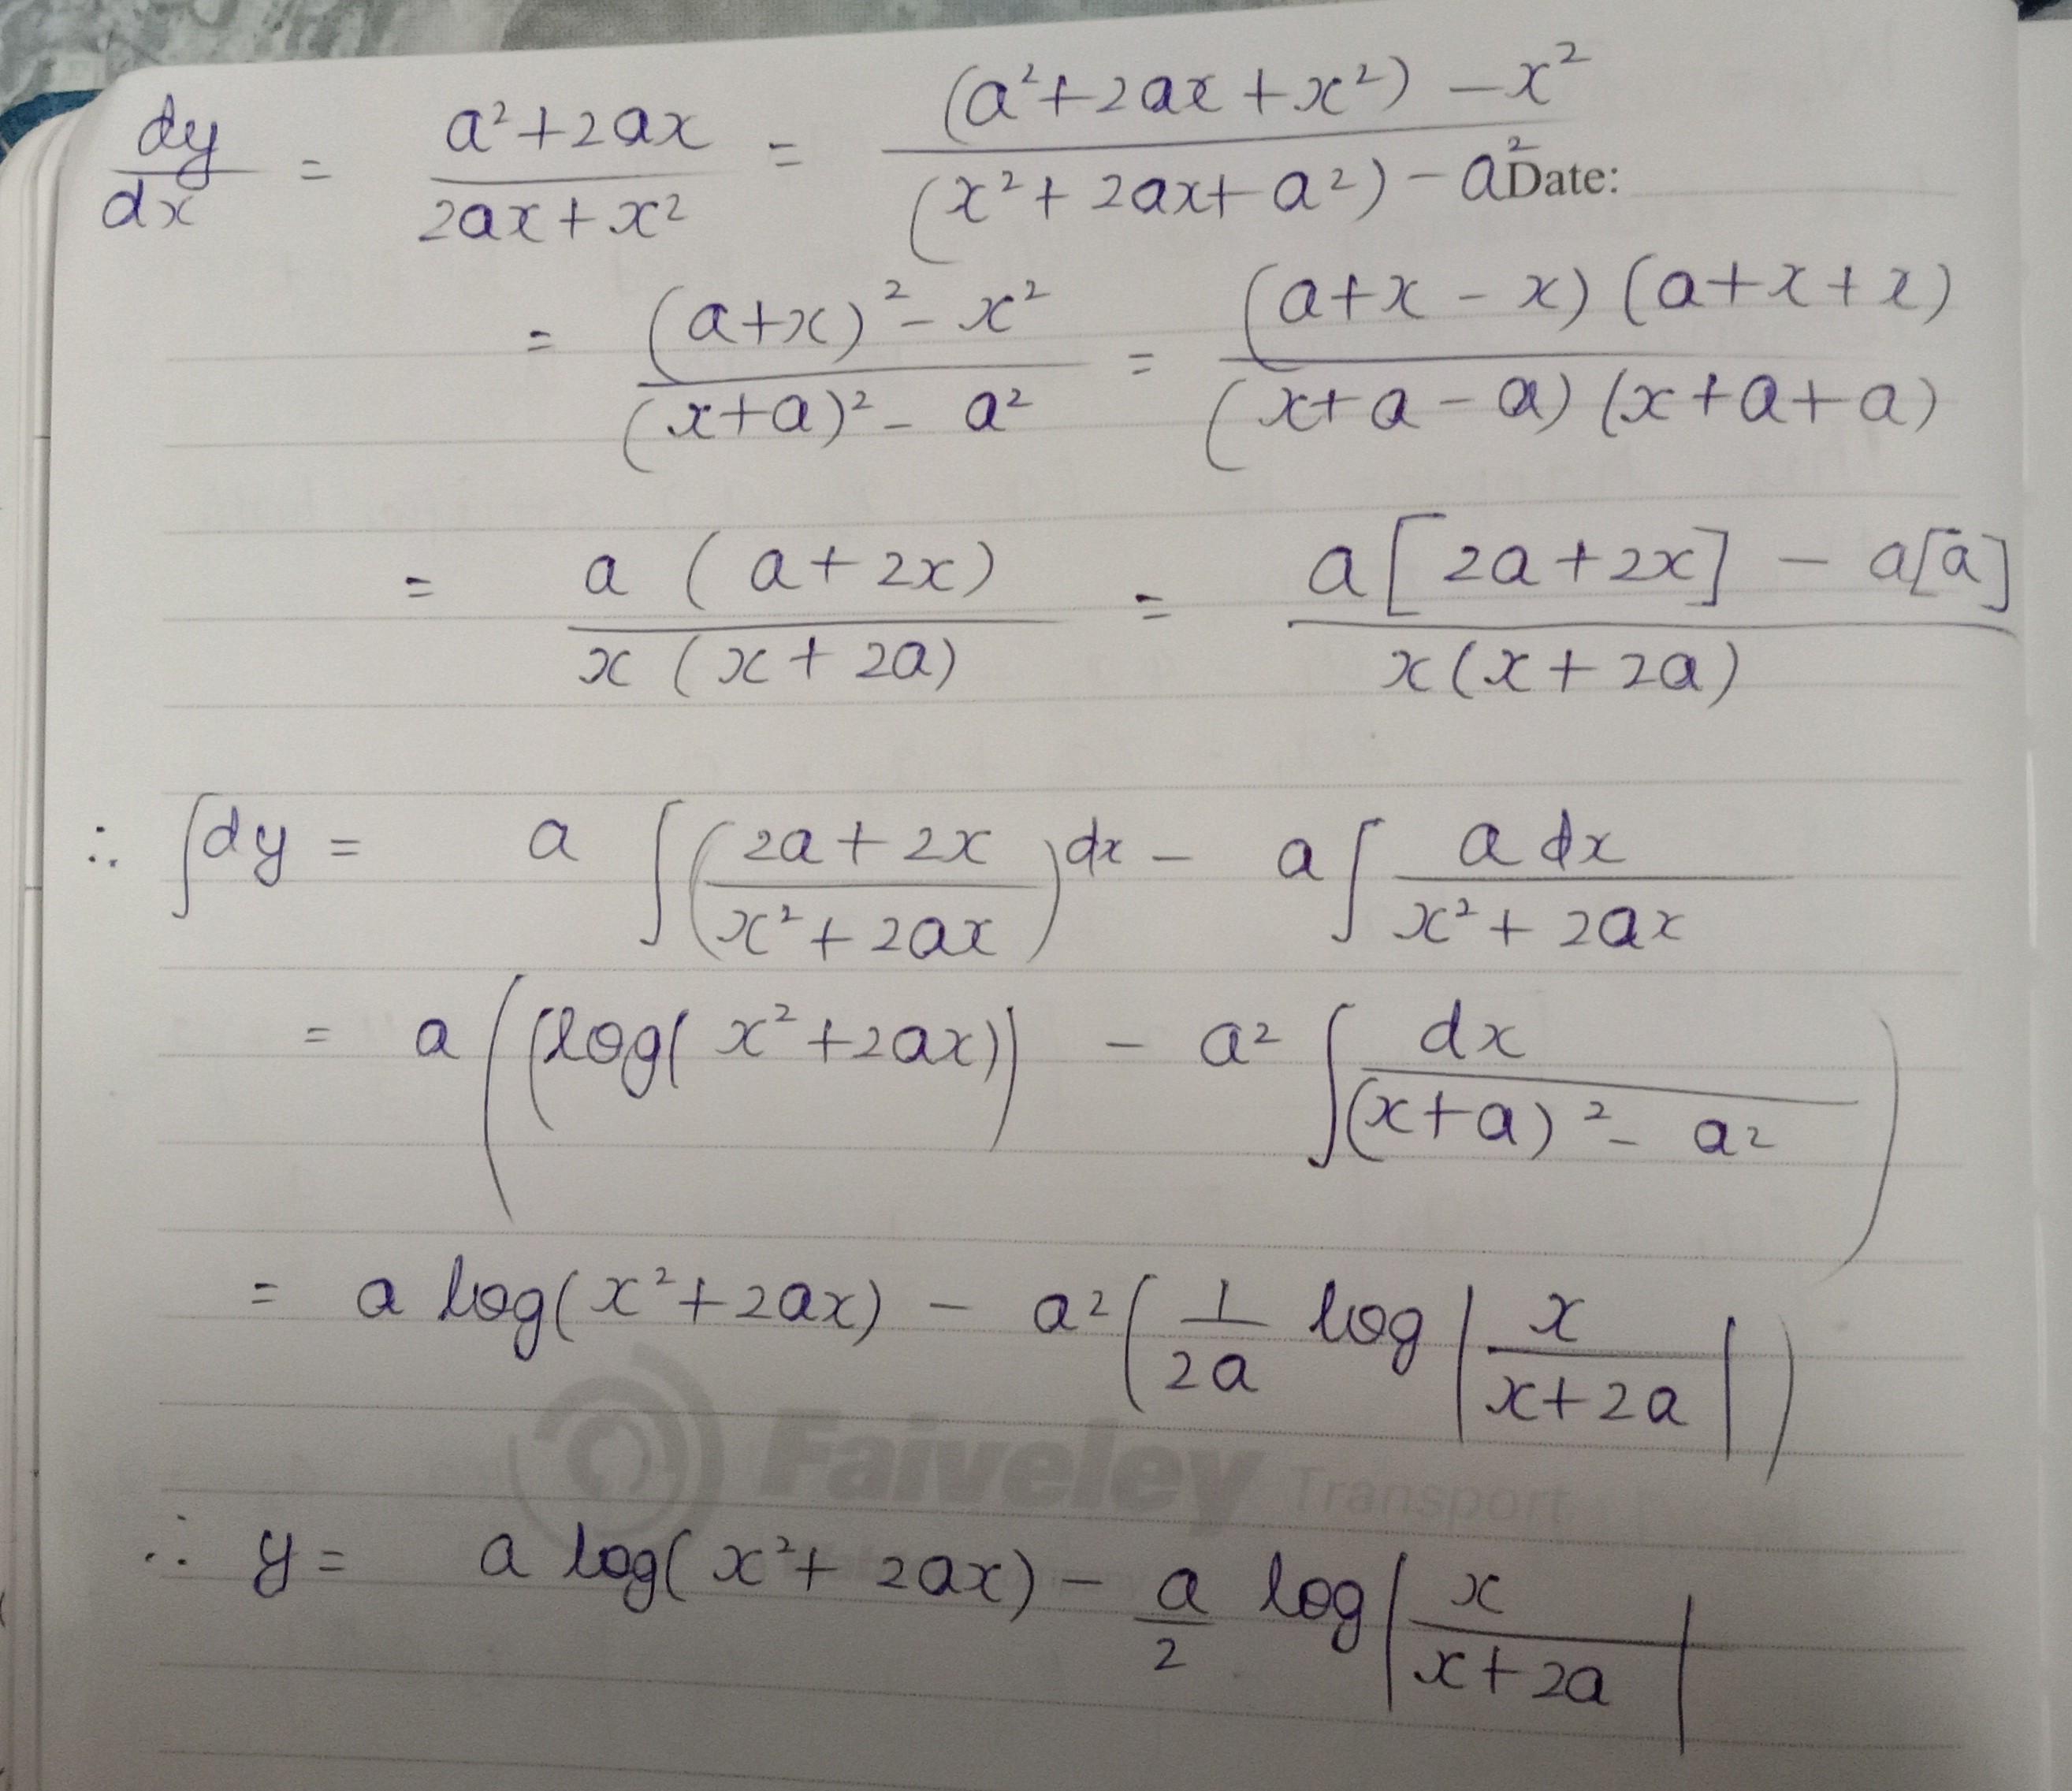 dy/dx = (a²+2ax)/(2ax+x²) = ((a²+2ax+x²) – x²)/((x²+2ax+a²) – a²)
Date:
= ((a+x)² – x²)/((x+a)² – a²) = ((a+x – x)(a+x+x))/((x+a – a)(x+a+a))
= (a (a+2x))/(x (x+2a)) = (a[2a+2x] – a[a])/(x(x+2a))
∴ ∫dy = a ∫((2a+2x)/(x²+2ax))dx – a∫ (a dx)/(x²+2ax)
= a((log(x²+2ax)) – a² ∫ dx/((x+a)² – a²))
= a log(x²+2ax) – a²(1/2a log|x/(x+2a)|)
Faiveley Transport
∴ y = a log(x²+2ax) – a/2 log|x/(x+2a)|